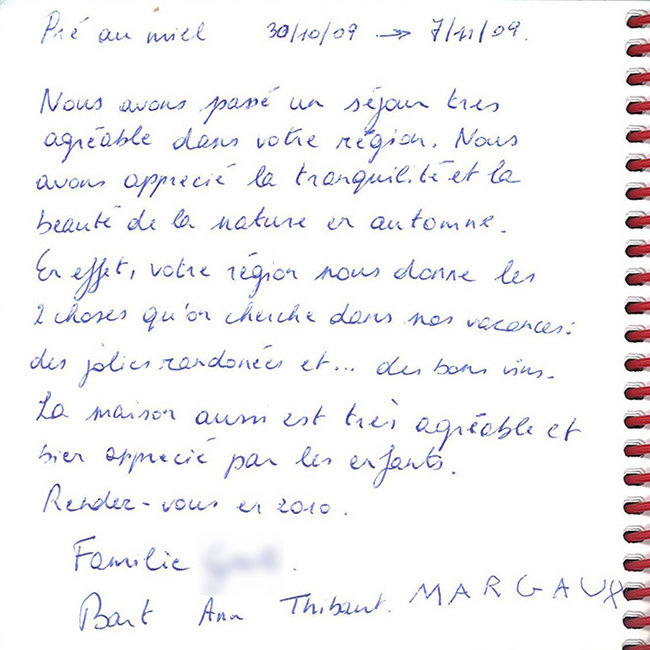 Pré au miel 30/10/09 → 7/11/09.
Nous avons passé un séjour tres
agréable dans votre région. Nous
avons apprecié la tranquilité et la
beauté de la nature en automne.
En effet, votre région nous donne les
2 choses qu'on cherche dans nos vacances:
des jolies randonées et... des bons vins.
La maison aussi est très agréable et
bien apprecié par les enfants.
Rendez-vous en 2010.
Familie
Bart Ann Thibaut. MARGAUX